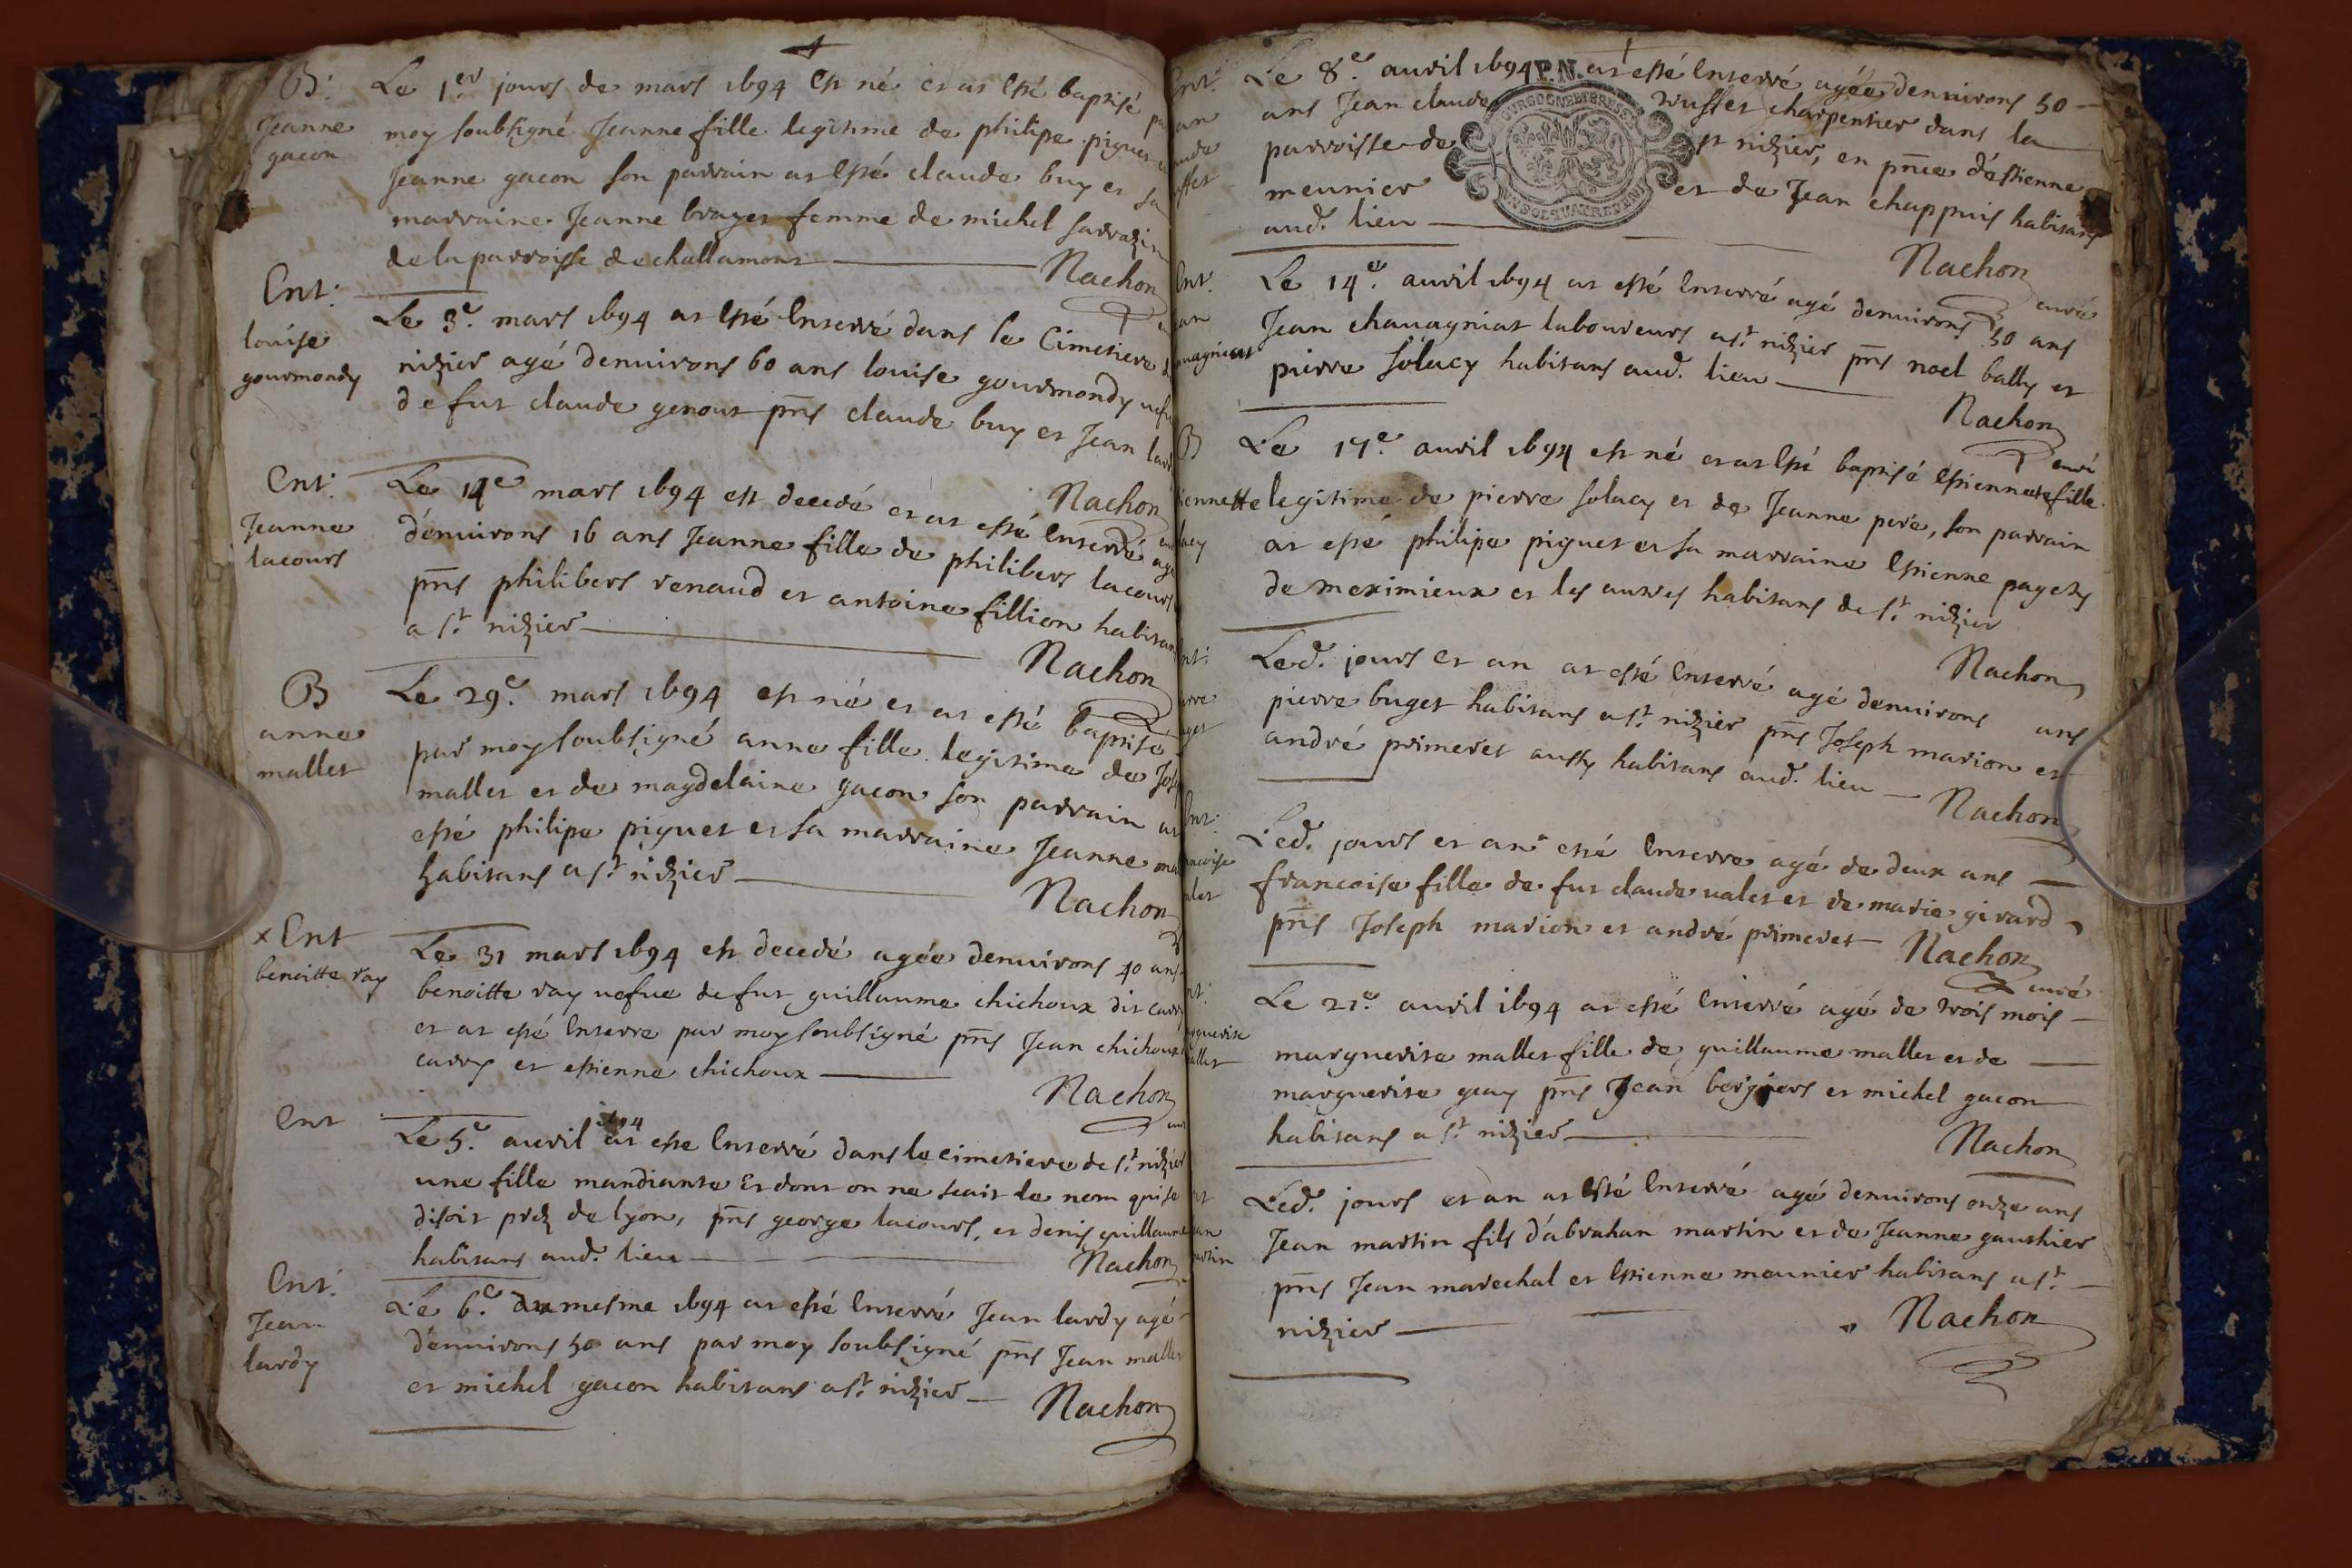 B:
Jeanne
gacon
Le 1er jours de mars 1694 est né et at esté baptisé
moy soubsigné Jeanne fille legitime de philipe piguet
Jeanne gacon son parrain at esté claude buy et sa
marraine Jeanne brayet femme de michel sarrazin
de la parroisse de challamont Nachon
Ent:
louise
gourmondy
Le 3e. mars 1694 at esté Enterré dans le Cimetiere
nizier agé denuirons 60 ans louise gourmondy uefue
de fut claude genout pnts claude buy et Jean
Nachon
Ent:
Jeanne
lacours
Le 14e mars 1694 est decedé et at esté Enterré agé
d'enuirons 16 ans Jeanne fille de philibert lacours
pnts philibert renaud et antoine fillion habitans
a st. nizier
Nachon
B
anne
mallet
Le 29e. mars 1694 est né et at esté baptisé
par moy soubsigné anne fille legitime de
mallet et de magdelaine gacon son parrain at
esté philipe piguet et sa marraine Jeanne
habitans a st. nizier
Nachon
x Ent
benoitte ray
Le 31 mars 1694 est decedé agée denuirons 40 ans
benoitte ray uefue de fut guillaume chichoux dit
et at esté Enterre par moy soubsigné pnts Jean chichoux
carry et estienne chichoux
Nachon
Ent
Le 5e. auril 1694 at esté Enterré dans le cimetiere de st. nizier
une fille mandiante Et dont on ne scait le nom qui se
disoit prez de lyon, pnts george lacours, et denis guillaume
habitans aud. lieu Nachon
Ent:
Jean
lardy
Le 6e. du mesme 1694 at esté Enterré Jean lardy agé
d'enuirons 50 ans par moy soubsigné pnts Jean mallet
et michel gacon habitans a st. nizier
Nachon
Le 8e. auril 1694 P.N. at esté Enterré agée denuirons 50
ans Jean claude truffet charpentier dans la
parroisse de st nizier, en pnce d'estienne
meunier et de Jean chappuis habitans
aud. lieu
Nachon curé
Ent.
Le 14e. auril 1694 at esté Enterré agé denuirons 50 ans
Jean chauagniat laboureurs a st. nizier pnts noel bally et
pierre solacy habitans aud. lieu
Nachon
curé
B
Le 17e. auril 1694 est né et at esté baptisé Estiennette fille
legitime de pierre solacy et de Jeanne pere, son parrain
at esté philipe piguet et sa marraine Estienne pagety
de meximieux et les autres habitans de st. nizier
Nachon
Led. jours et an at esté Enterré agé denuirons ans
pierre buget habitans a st. nizier pnts Joseph marion et
andré primeret aussy habitans aud. lieu
Nachon
Led. jours et an esté Enterre agé de deux ans
francoise fille de fut claude ualet et de marie girard
pnts Joseph marion et andré primeret Nachon
curé
Le 21e. auril 1694 at esté Enterré agé de trois mois
marguerite mallet fille de guillaume mallet et de
marguerite guy pnts Jean bergiers et michel gacon
habitans a st. nizier
Nachon
Led. jours et an at Esté Enterré agé denuirons onze ans
Jean martin fils d'abrahan martin et de Jeanne gauthier
pnts Jean marechal et Estienne meunier habitans a st.
nizier
Nachon